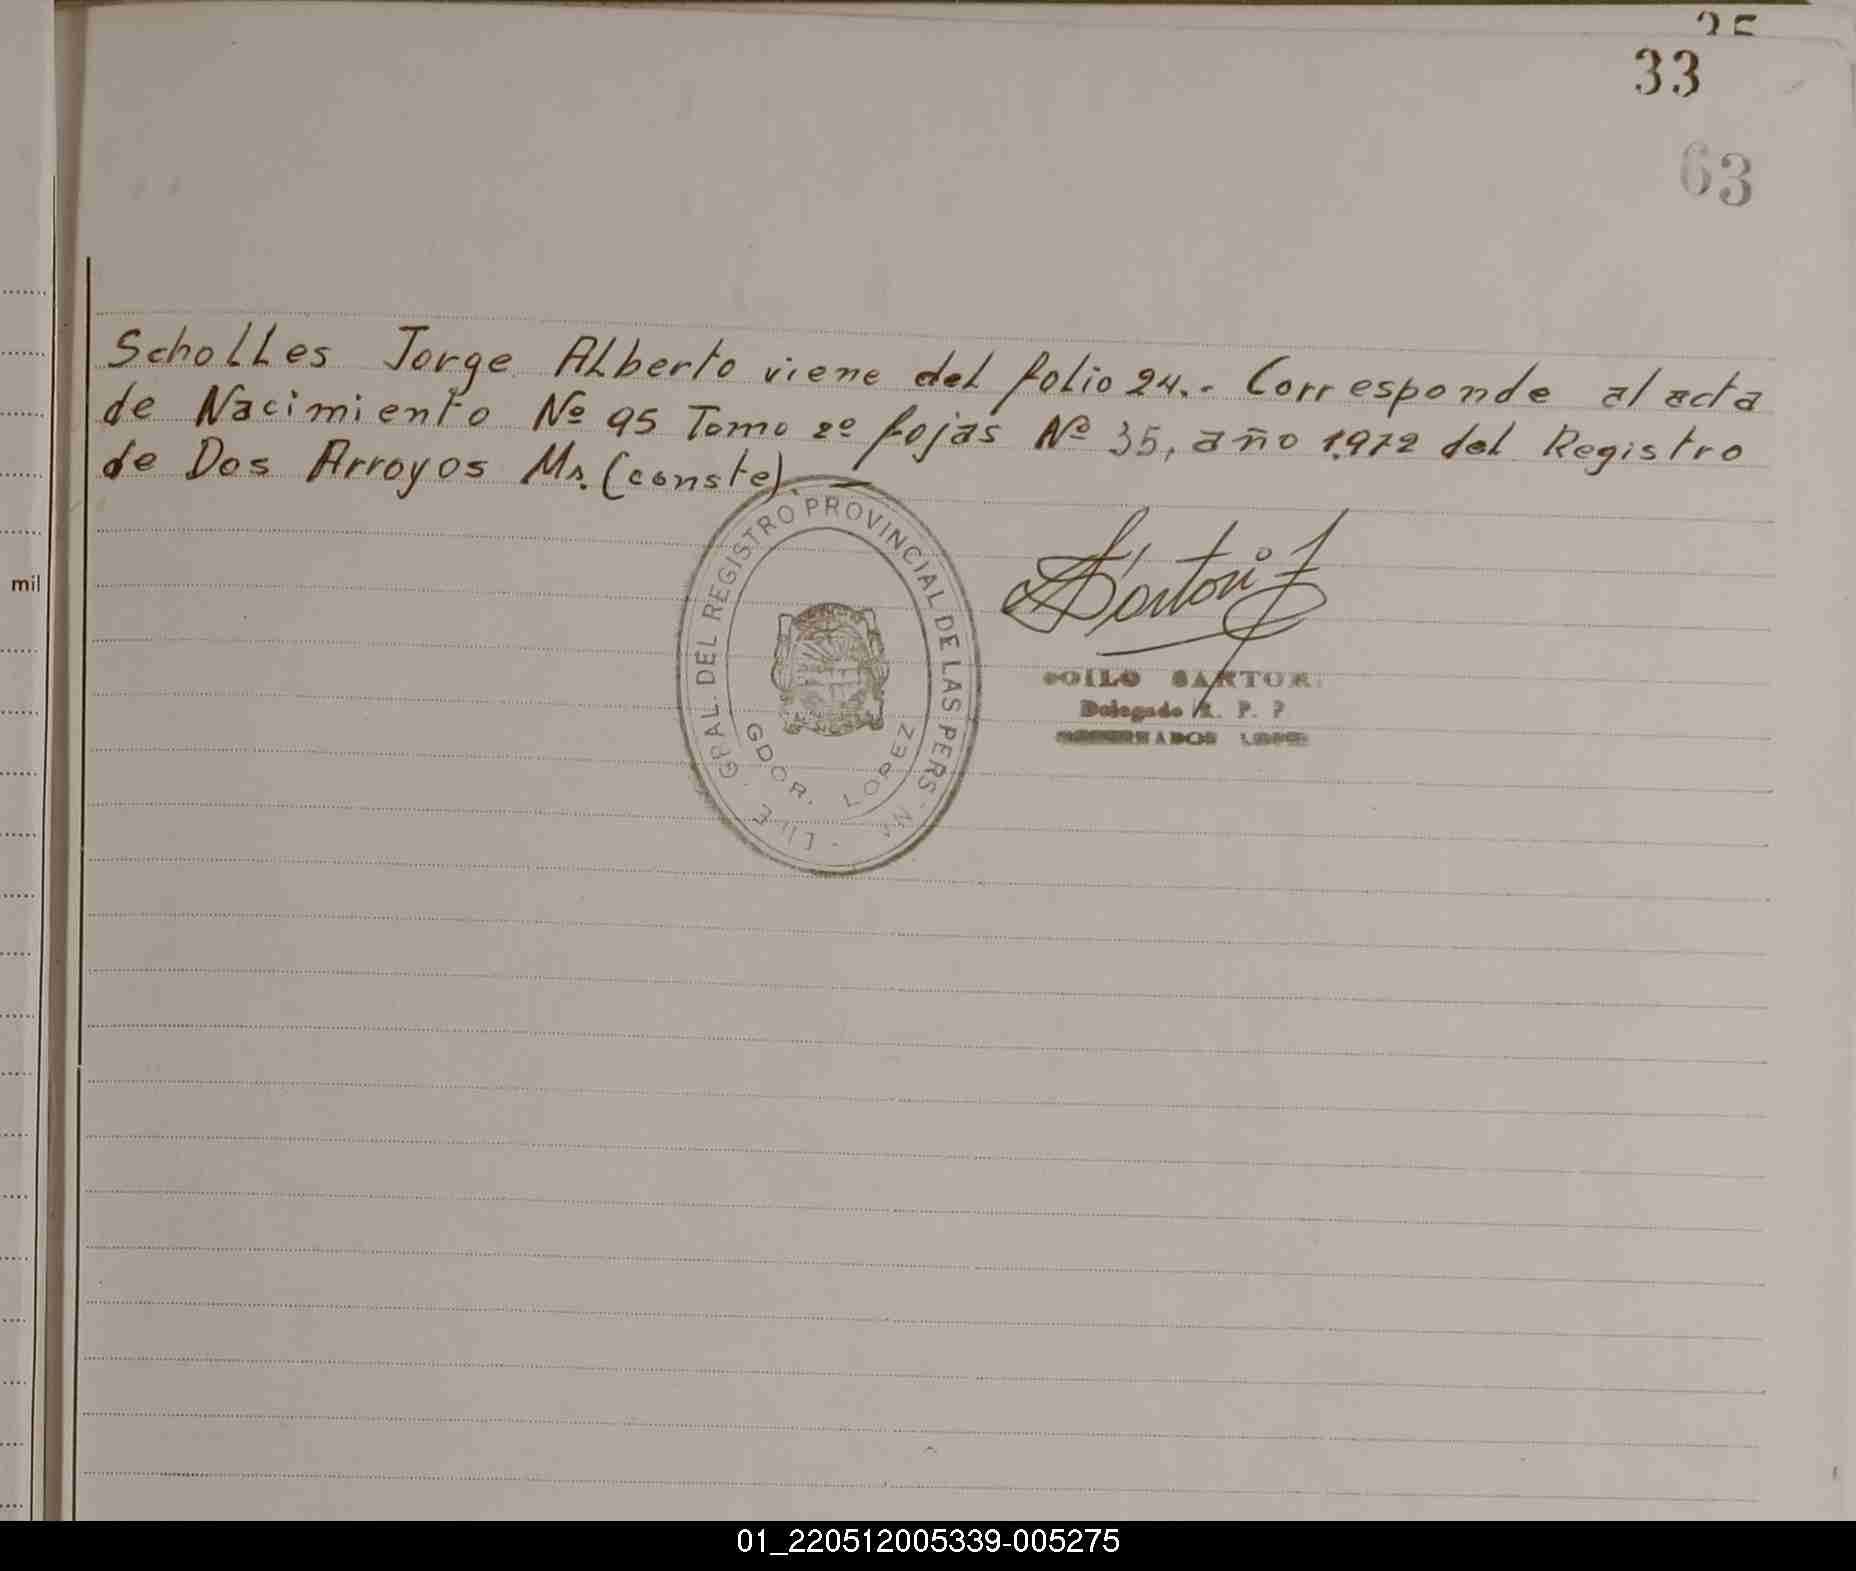 35
33
63
Scholles Jorge Alberto viene del folio 24.- Corresponde al acta
de Nacimiento Nº 95 Tomo 2º fojas Nº 35, año 1972 del Registro
mil
de Dos Arroyos Ms. (conste). —
GRAL. DEL REGISTRO PROVINCIAL DE LAS PERS.
GDOR. LOPEZ
Sartori
SARTORI
Delegado R. P. P.
01_220512005339-005275